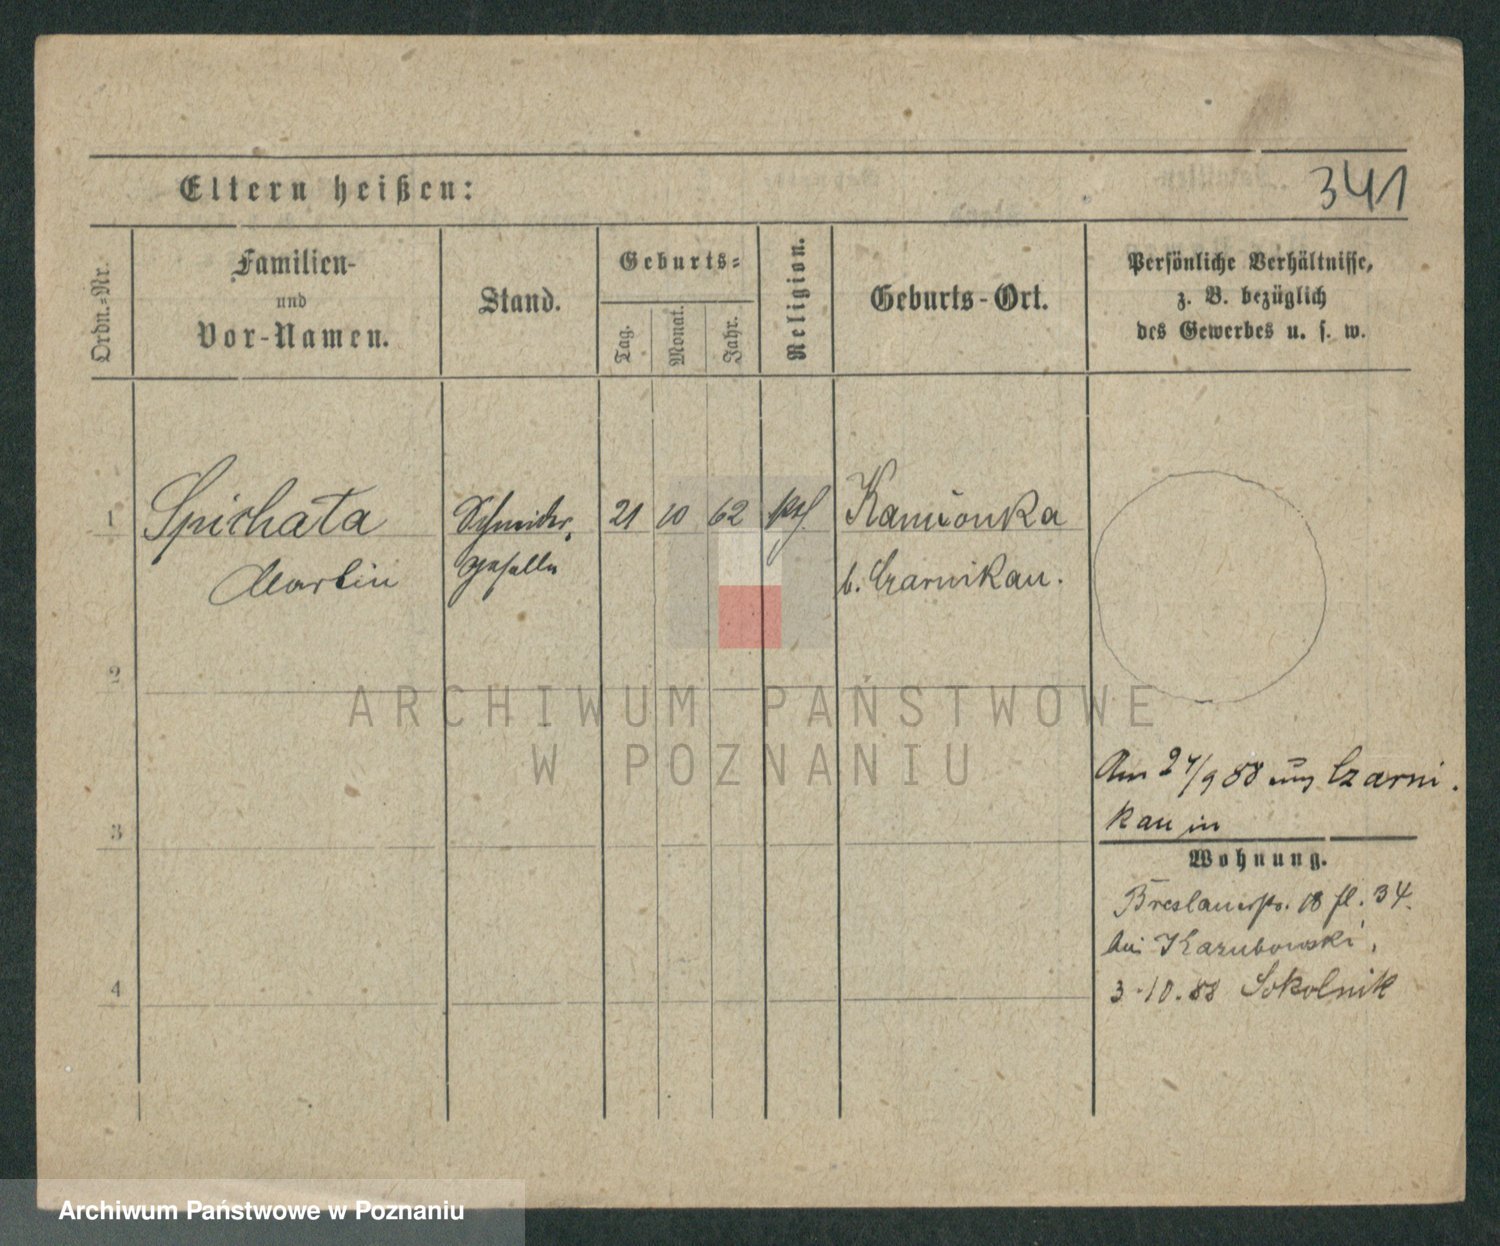 341
Eltern heißen:
Ordn.=Nr.
Familien-
und
Vor-Namen.
Stand.
Geburts=
Tag.
Monat.
Jahr.
Religion.
Geburts-Ort.
Persönliche Verhältnisse,
z. B. bezüglich
des Gewerbes u. s. w.
1
Spichata
Martin
Schneider,
geselle
21
10
62
kth
Kamionka
b. Czarnikau.
2
ARCHIWUM PAŃSTWOWE
W POZNANIU
Am 24/9 88 aus Czarni.
kau in
3
Wohnung.
Breslauerstr. 18 fl. 34.
bei Kazubowski,
4
3.10.88 Sokolnik
Archiwum Państwowe w Poznaniu